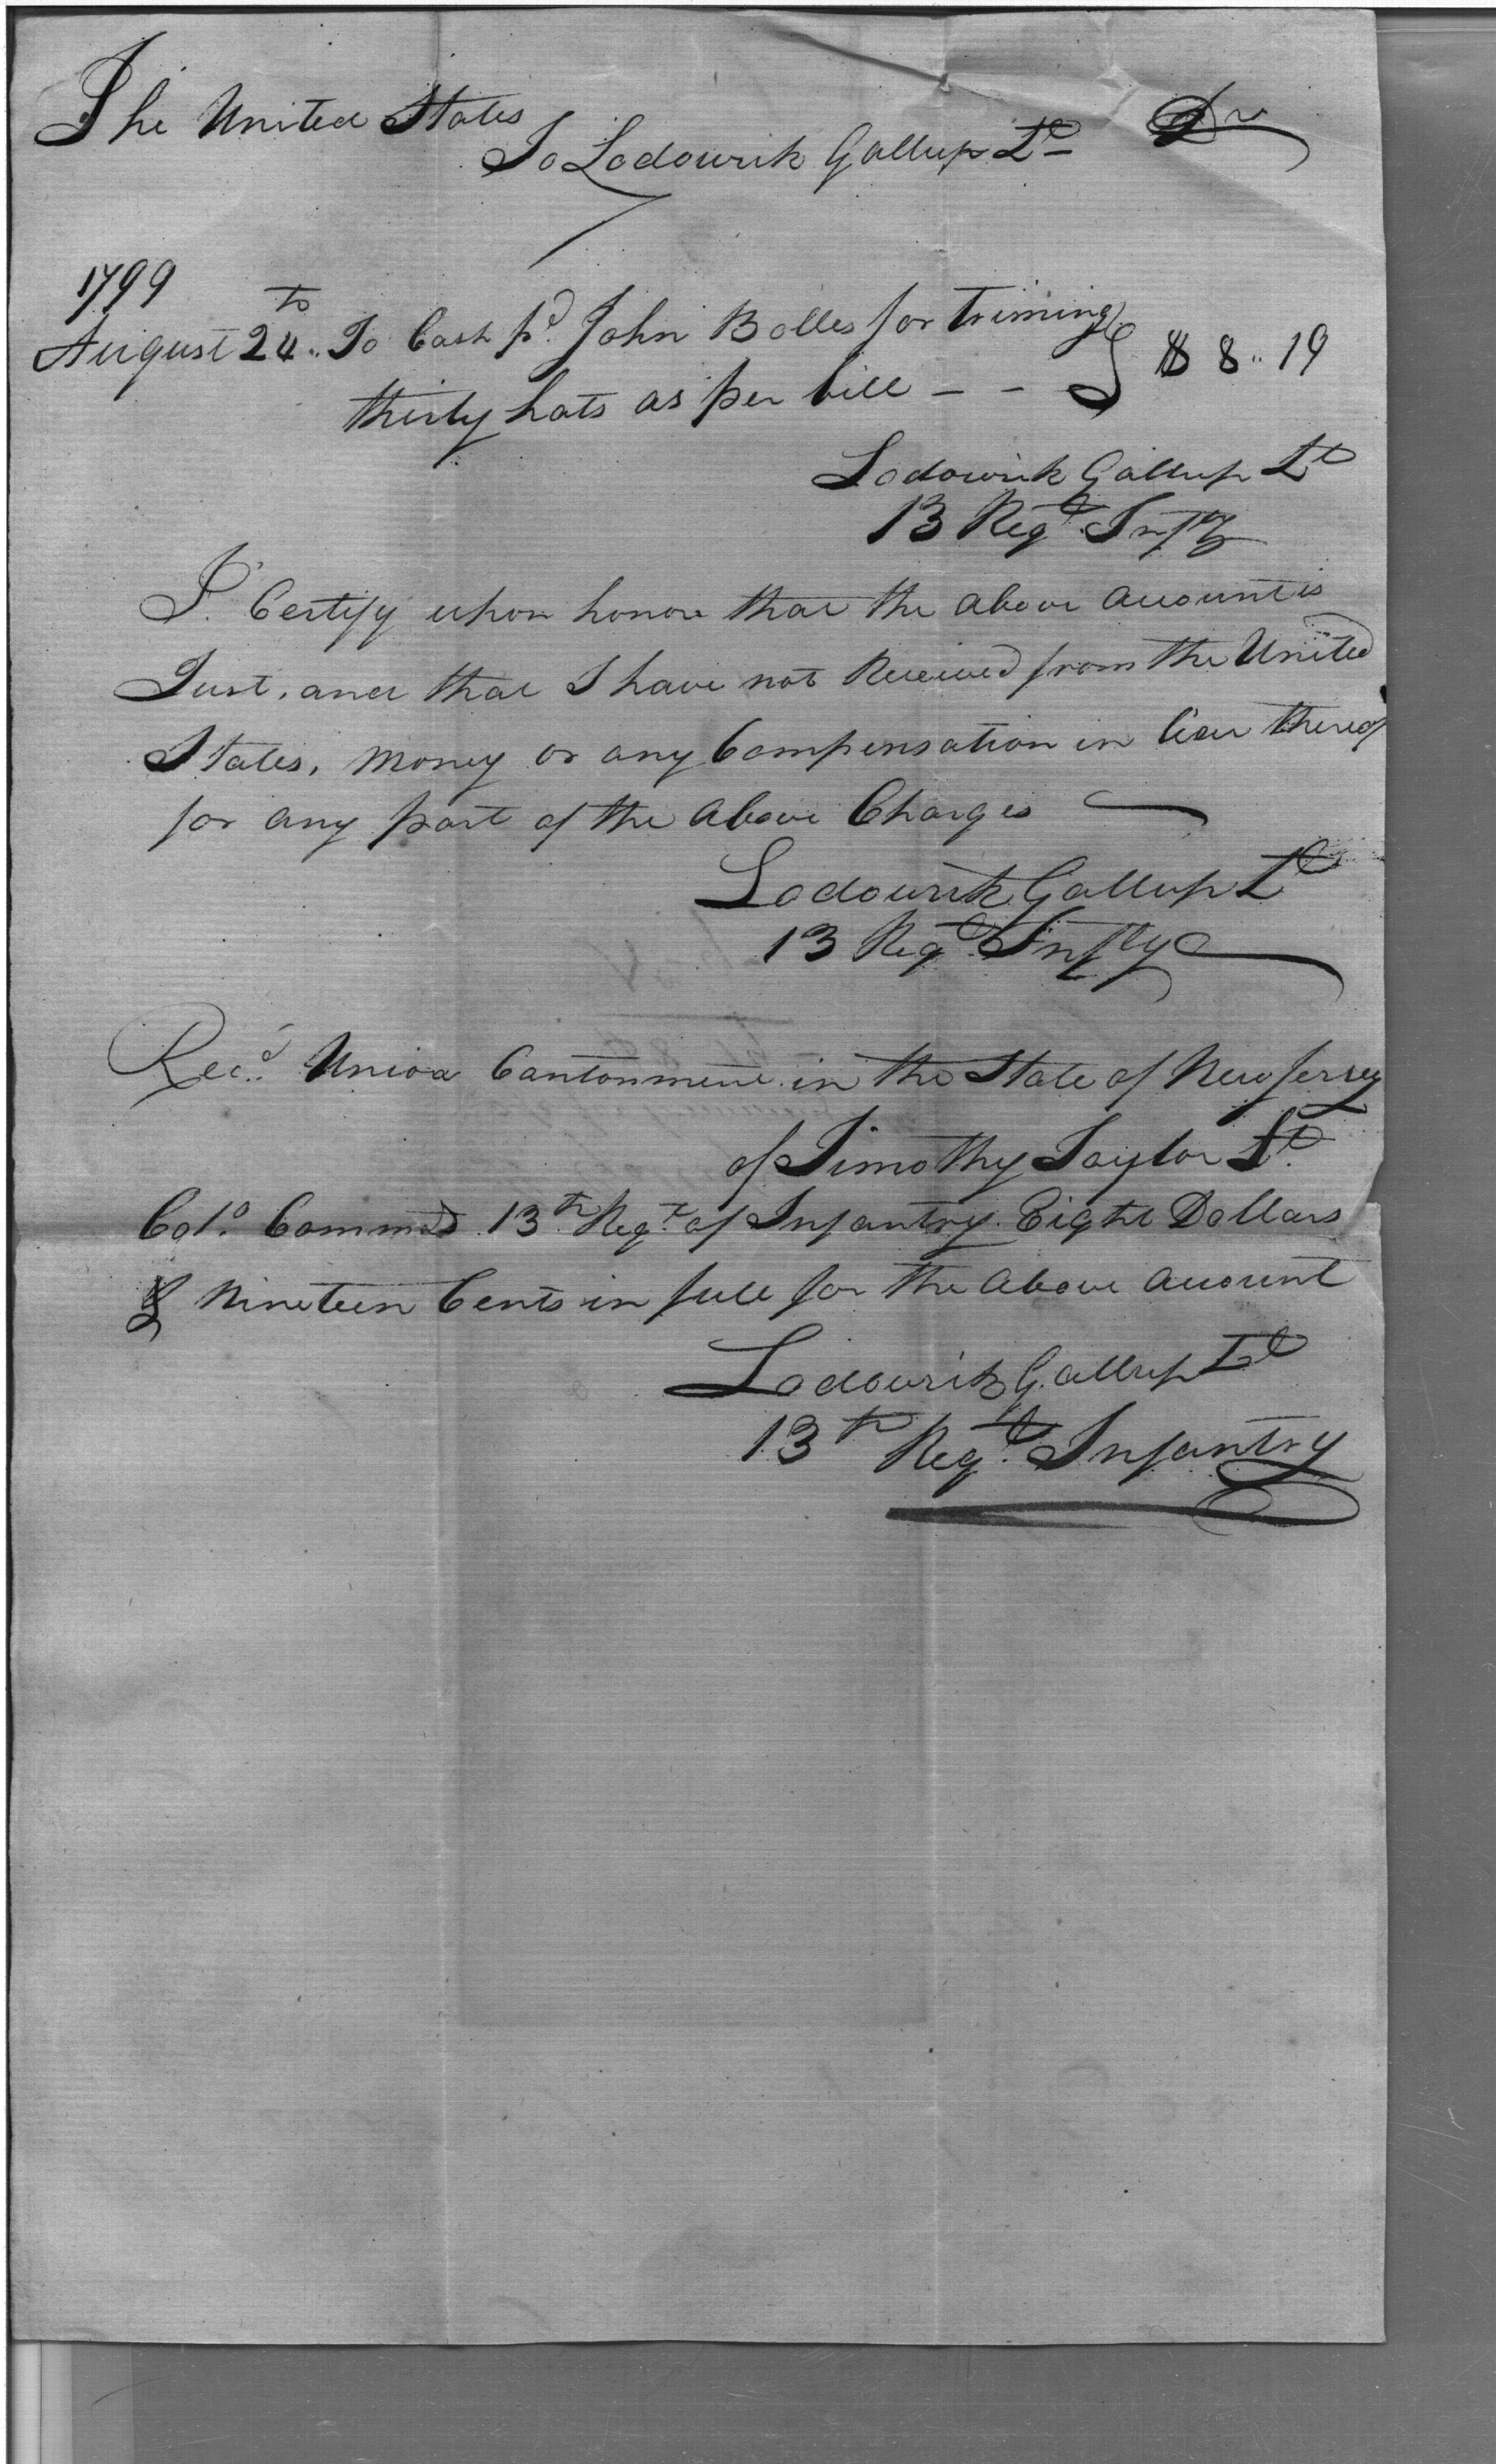 The United States
To Lodowick Gallup Lt Dr
1799
August 24th To Cash pd. John Bolles for Triming
thirty hats as per bill - - } $ 8.. 19
Lodowick Gallup Lt
13 Regt. Infty
I Certify upon honor that the above account is
Just, and that I have not Received from the United
States, money or any Compensation in lieu thereof
for any part of the above Charges
Lodowick Gallup Lt
13 Regt. Infty
Recd. Union Cantonment in the State of New Jersey
of Timothy Taylor Lt.
Colo. Commdt 13th Regt. of Infantry. Eight Dollars
& Nineteen Cents in full for the above account
Lodowick Gallup Lt
13th Regt. Infantry